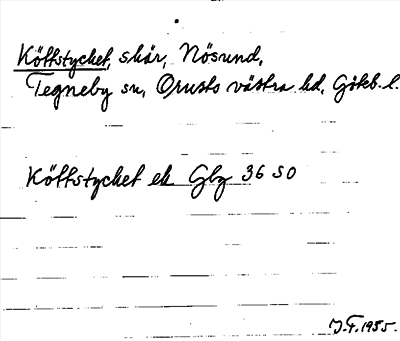 Köttstycket, skär, Nösund,
Tegneby sn, Orusts västra hd, Gbkb. l.
Köttstycket ek Gbg 36 SO
J.F. 1955.